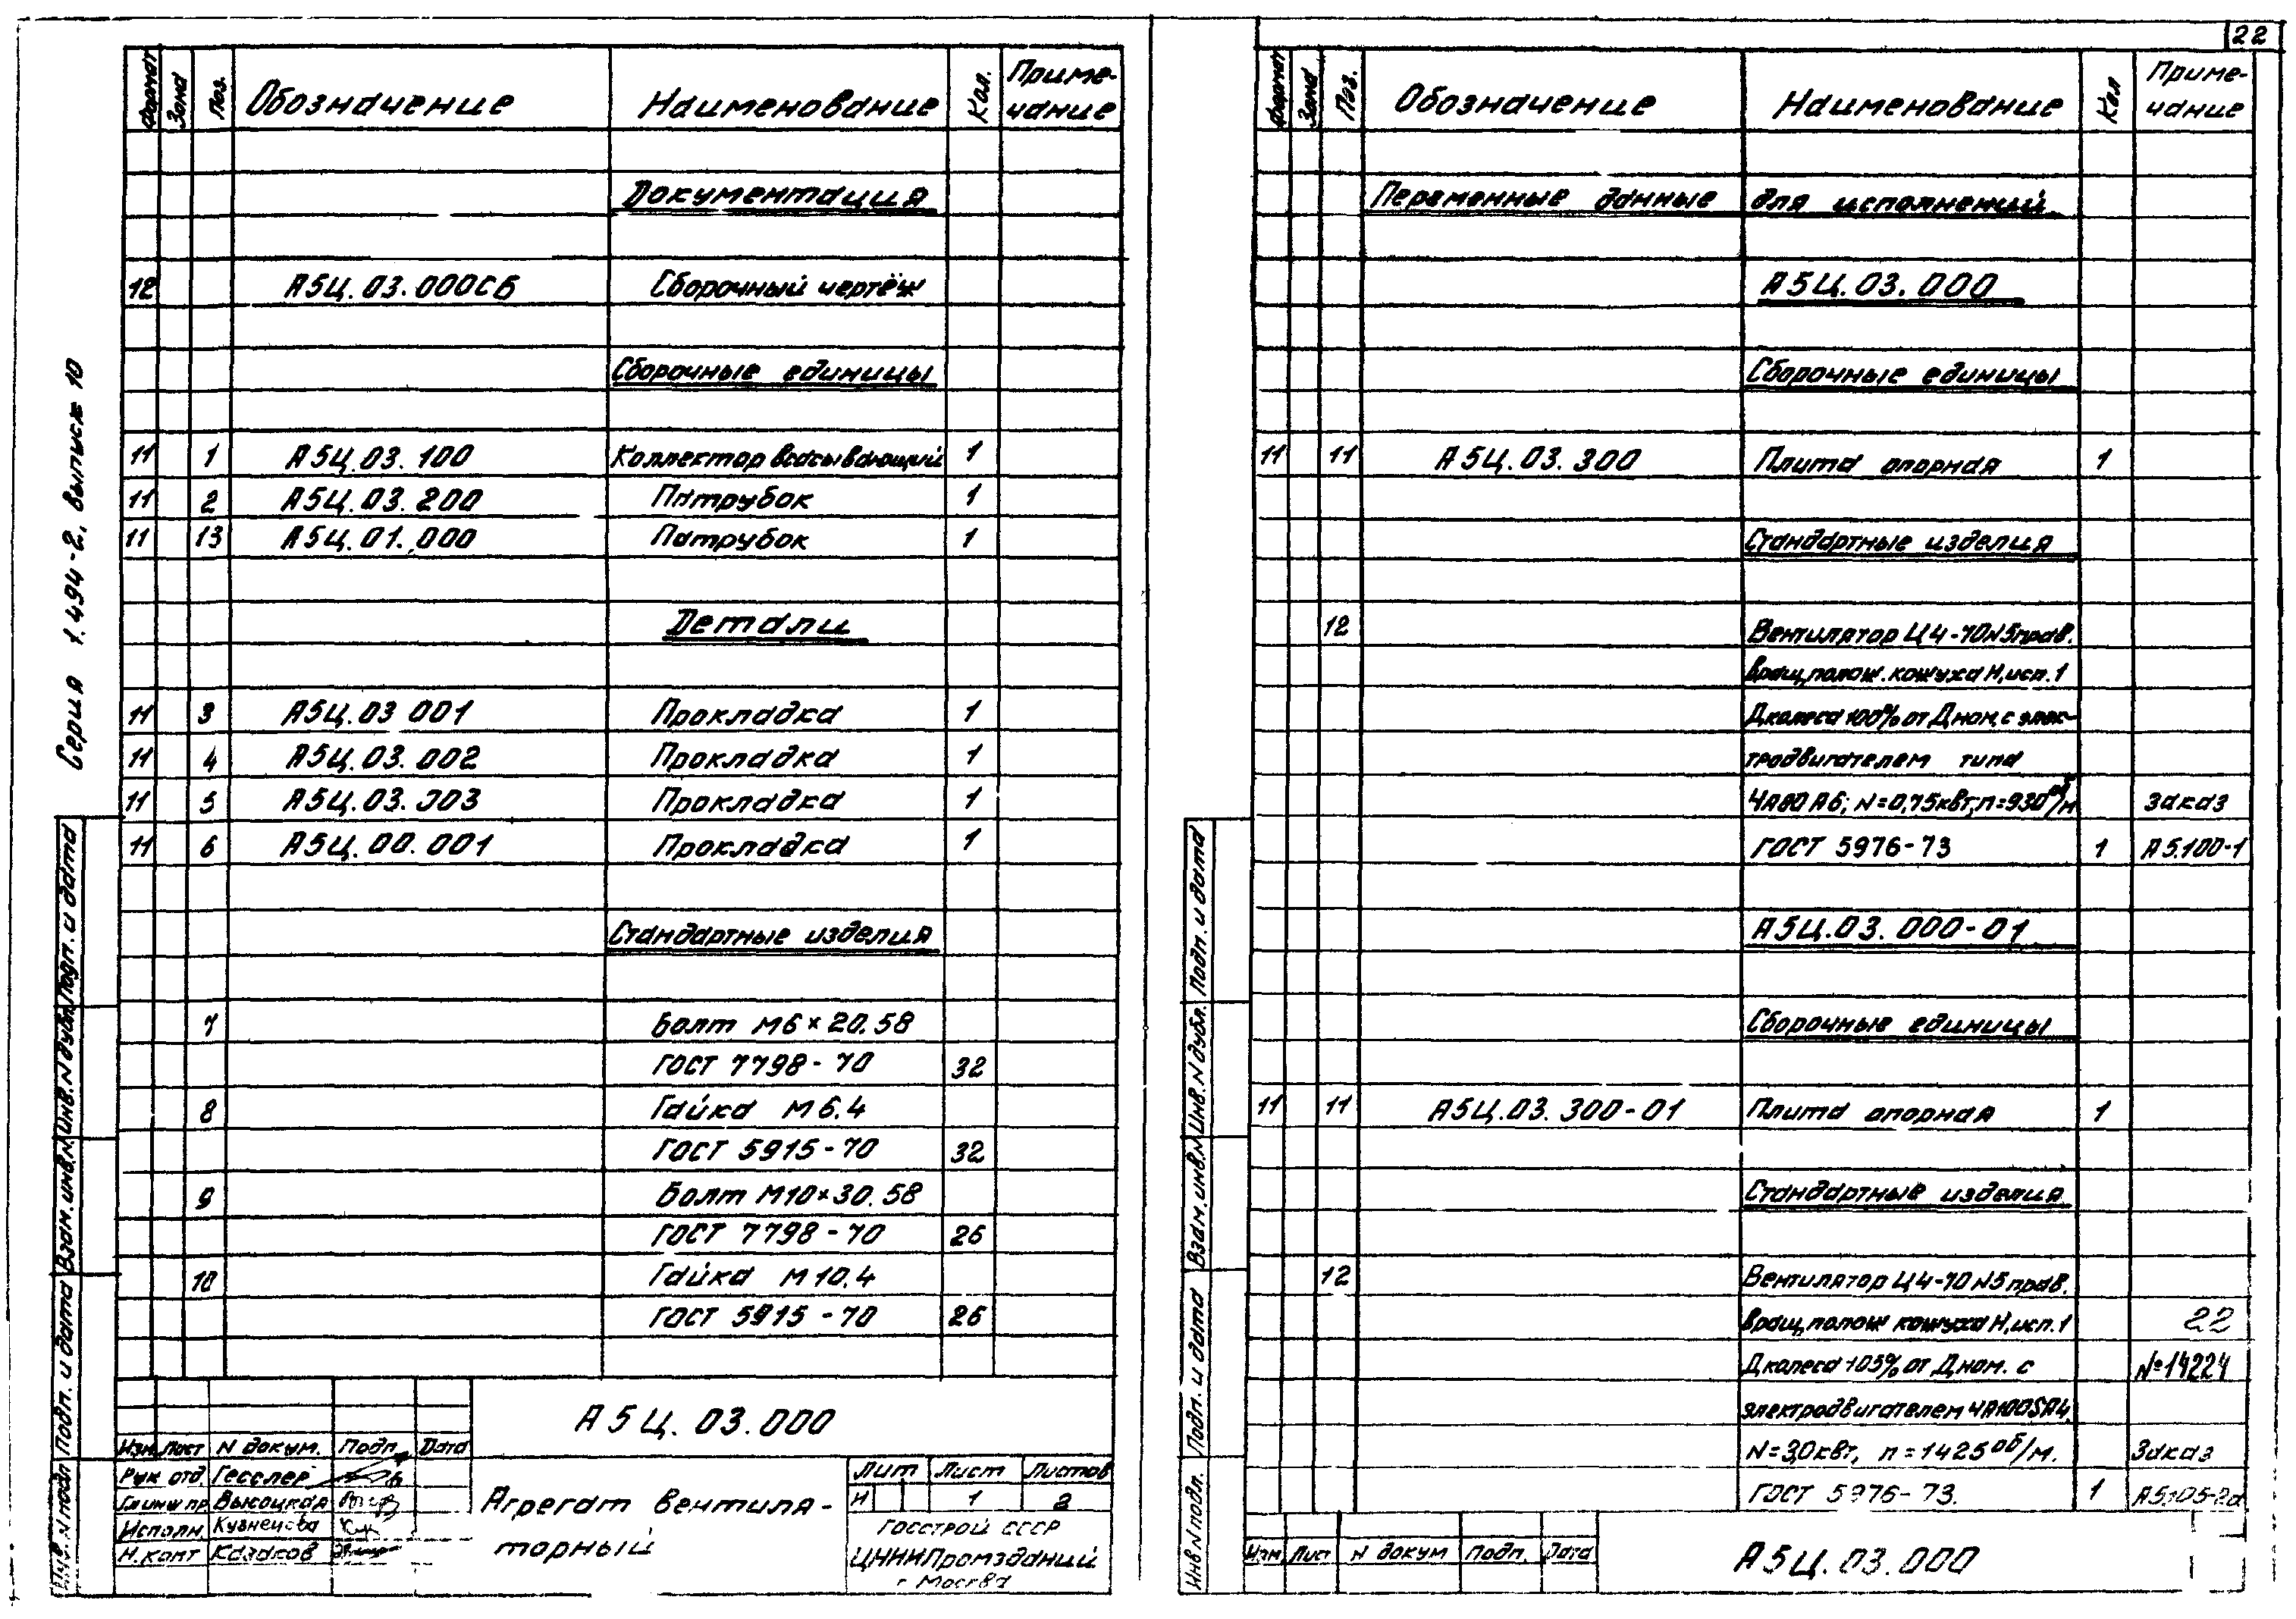 22
Серия 1.494-2, выпуск 10
Формат Зона Поз. Обозначение Наименование Кол. Приме-
чание
Документация
12 А5Ц.03.000СБ Сборочный чертёж
Сборочные единицы
11 1 А5Ц.03.100 Коллектор всасывающий 1
11 2 А5Ц.03.200 Патрубок 1
11 13 А5Ц.01.000 Патрубок 1
Детали
11 3 А5Ц.03 001 Прокладка 1
11 4 А5Ц.03.002 Прокладка 1
11 5 А5Ц.03.003 Прокладка 1
11 6 А5Ц.00.001 Прокладка 1
Стандартные изделия
7 Болт М6×20.58
ГОСТ 7798-70 32
8 Гайка М6.4
ГОСТ 5915-70 32
9 Болт М10×30.58
ГОСТ 7798-70 26
10 Гайка М10.4
ГОСТ 5915-70 26
Инв. N подл Подп. и дата Взам. инв. N. Инв. N дубл. Подп. и дата
А5Ц.03.000
Изм. Лист N докум. Подп. Дата
Рук отд. Гесслер
Гл инж пр Высоцкая
Исполн. Кузнецова
Н.конт Казаков
Агрегат вентиля-
торный
Лит Лист Листов
И 1 2
Госстрой СССР
ЦНИИПромзданий
г Москва
Формат Зона Поз. Обозначение Наименование Кол Приме-
чание
Переменные данные для исполнений
А5Ц.03.000
Сборочные единицы
11 11 А5Ц.03.300 Плита опорная 1
Стандартные изделия
12 Вентилятор Ц4-70N5прав.
вращ,полож.кожуха Н,исп.1
Дколеса 100% от Дном, с элек-
тродвигателем типа
4А80А6; N=0,75квт,n=930об/м заказ
ГОСТ 5976-73 1 А5.100-1
А5Ц.03.000-01
Сборочные единицы
11 11 А5Ц.03.300-01 Плита опорная 1
Стандартные изделия
12 Вентилятор Ц4-70 N5 прав.
вращ,полож кожуха Н,исп.1 22
Дколеса 105% от Дном. с №14224
электродвигателем 4А100SА4,
N=3,0квт, n=1425об/м. Заказ
ГОСТ 5976-73. 1 А5.105-2а
Инв N подл. Подп. и дата Взам. инв.N Инв. N дубл. Подп. и дата
Изм Лист N докум Подп. Дата
А5Ц.03.000